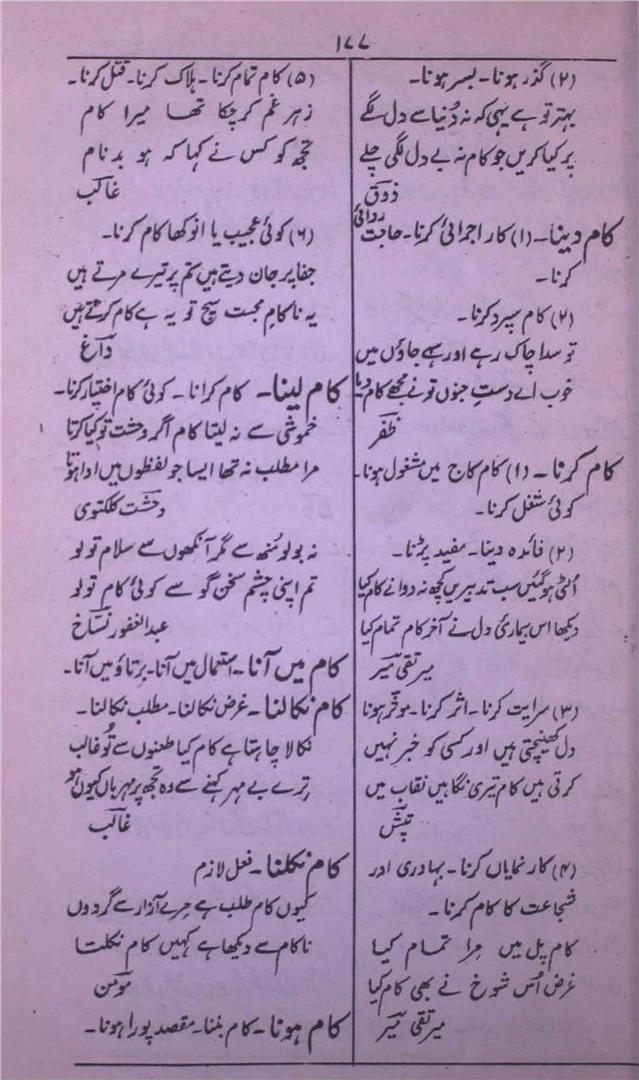 ۱۷۷
(۲) گذر ہونا۔ بسر ہونا۔
بہتر تو ہے یہی کہ نہ دُنیا سے دل لگے
پر کیا کریں جو کام نہ بے دل لگی چلے
ذوق
کام دینا۔ (۱) کار اجرائی کرنا۔ حاجت روائی
کرنا۔
(۲) کام سپرد کرنا۔
تو سدا چاک رہے اور سیے جاؤں میں
خوب اے دستِ جنوں تو نے مجھے کام دیا
ظفر
کام کرنا۔ (۱) کام کاج میں مشغول ہونا۔
کوئی شغل کرنا۔
(۲) فائدہ دینا۔ مفید پڑنا۔
اُلٹی ہو گئیں سب تدبیریں کچھ نہ دوا نے کام کیا
دیکھا اس بیماریٔ دل نے آخر کام تمام کیا
میر تقی میر
(۳) سرایت کرنا۔ اثر کرنا۔ موثر ہونا
دل کھینچتی ہیں اور کسی کو خبر نہیں
کرتی ہیں کام تیری نگاہیں نقاب میں
تپش
(۴) کار نمایاں کرنا۔ بہادری اور
شجاعت کا کام کرنا۔
کام پل میں مِرا تمام کیا
غرض اُس شوخ نے بھی کام کیا
میر تقی میر
(۵) کام تمام کرنا۔ ہلاک کرنا۔ قتل کرنا۔
زہر غم کر چکا تھا میرا کام
تجھ کو کس نے کہا کہ ہو بدنام
غالب
(۶) کوئی عجیب یا انوکھا کام کرنا۔
جفا پر جان دیتے ہیں ستم پر تیرے مرتے ہیں
یہ ناکامِ محبت سچ تو یہ ہے کام کرتے ہیں
داغ
کام لینا۔ کام کرانا۔ کوئی کام اختیار کرنا۔
خموشی سے نہ لیتا کام اگر وحشت تو کیا کرتا
مرا مطلب نہ تھا ایسا جو لفظوں میں ادا ہوتا
وحشت کلکتوی
نہ بولو مُنھ سے گر آنکھوں سے سلام تو لو
تم اپنی چشم سخن گو سے کوئی کام تو لو
عبدالغفور نساخ
کام میں آنا۔ استعمال میں آنا۔ برتاؤ میں آنا۔
کام نکالنا۔ غرض نکالنا۔ مطلب نکالنا۔
نکالا چاہتا ہے کام کیا طعنوں سے تُو غالب
تِرے بے مہر کہنے سے وہ تجھ پر مہرباں کیوں ہو
غالب
کام نکلنا۔ فعل لازم
کیوں کام طلب ہے مِرے آزار سے گردوں
ناکام سے دیکھا ہے کہیں کام نکلتا
مومن
کام ہونا۔ کام بننا۔ مقصد پورا ہونا۔